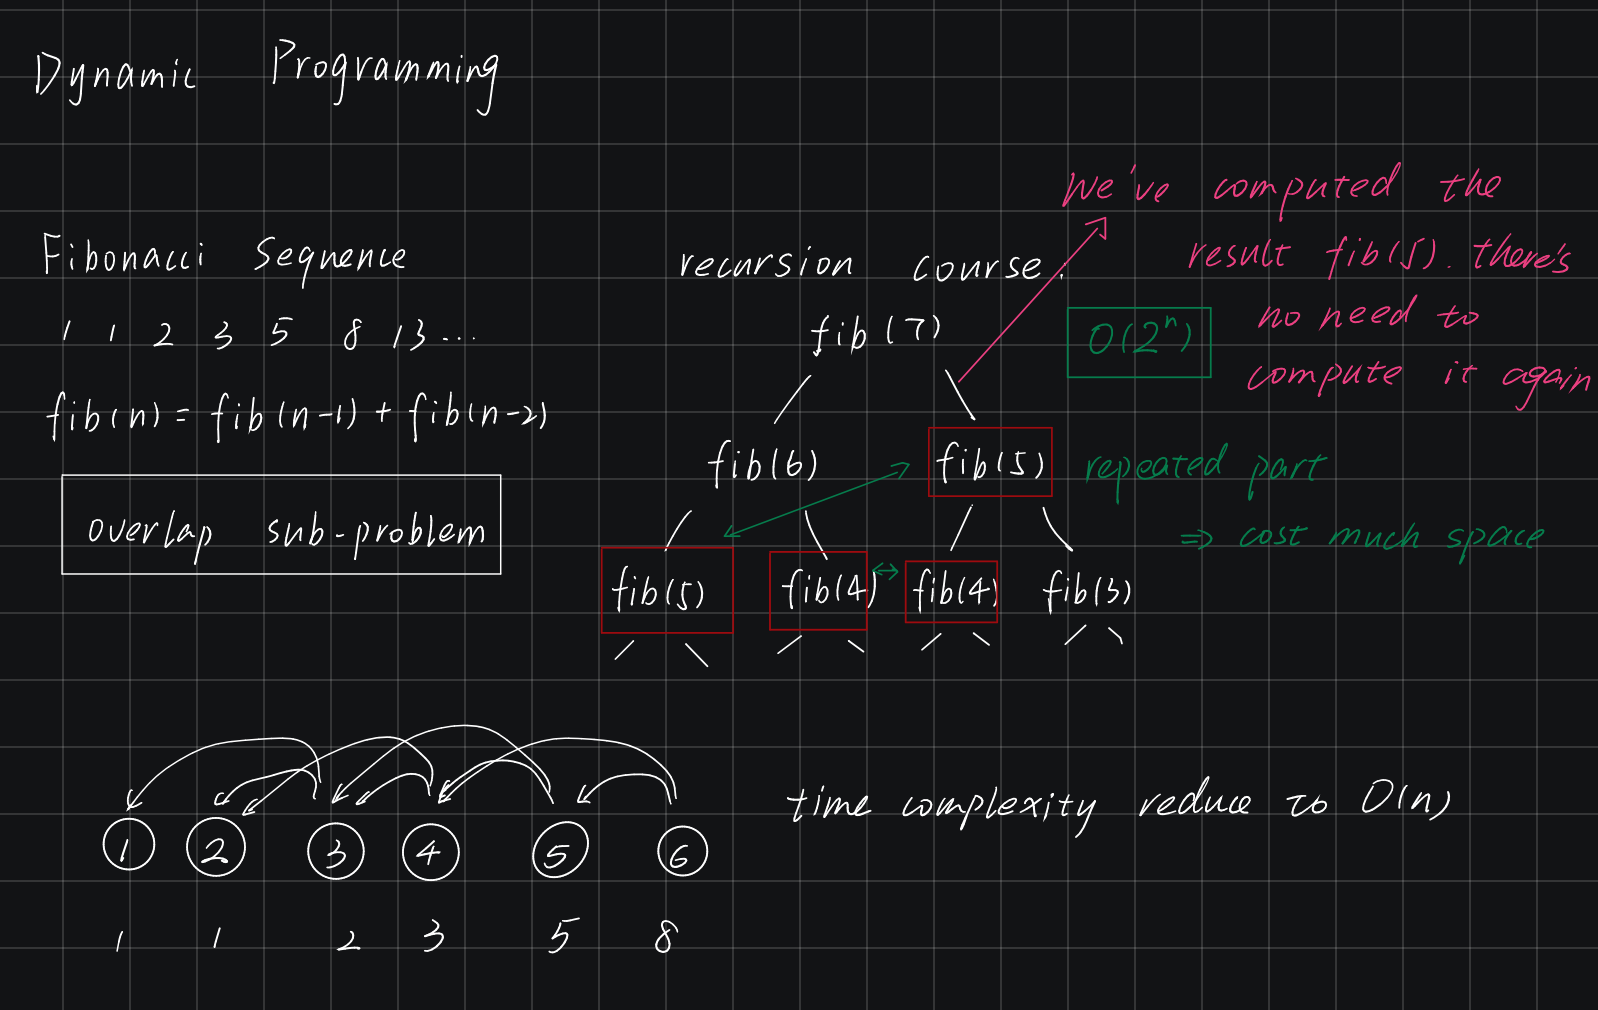 Dynamic Programming
Fibonacci Sequence
1 1 2 3 5 8 13 ...
fib(n) = fib(n-1) + fib(n-2)
overlap sub-problem
recursion course.
fib(7)
fib(6) fib(5)
fib(5) fib(4) fib(4) fib(3)
O(2ⁿ)
We've computed the
result fib(5). there's
no need to
compute it again
repeated part
⇒ cost much space
1 2 3 4 5 6
1 1 2 3 5 8
time complexity reduce to O(n)